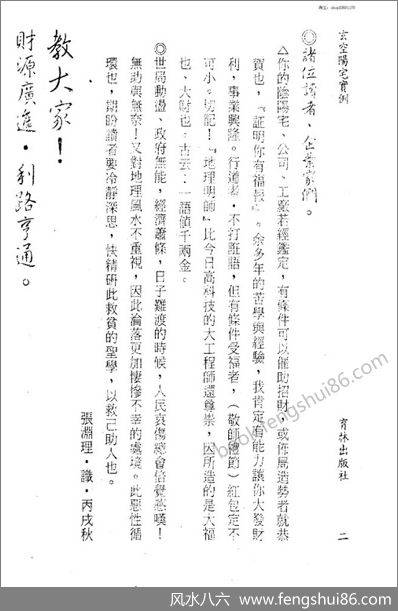 玄空陽宅實例
育林出版社
二
◎諸位讀者、企業家們。
△你的陰陽宅、公司、工廠若經鑑定，有條件可以催助招財，或佈局造勢者就恭
賀也，『証明你有福報』。余多年的苦學與經驗，我肯定有能力讓你大發財
利，事業興隆。行道者，不打誑語，但有條件受福者，（敬師禮節）紅包定不
可小。切記！『地理明師』比今日高科技的大工程師還尊崇，因所造的是大福
也、大財也。古云：一語值千兩金。
◎世局動盪、政府無能，經濟蕭條，日子難渡的時候，人民哀傷總會倍覺感嘆！
無助與無奈！又對地理風水不重視，因此淪落更加悽慘不幸的處境。此惡性循
環也，期盼讀者要冷靜深思，快精研此救貧的聖學，以救己助人也。
張淵理·識·丙戌秋
教大家！
財源廣進·利路亨通。
book.fengshui86.com
风水八六 - www.fengshui86.com